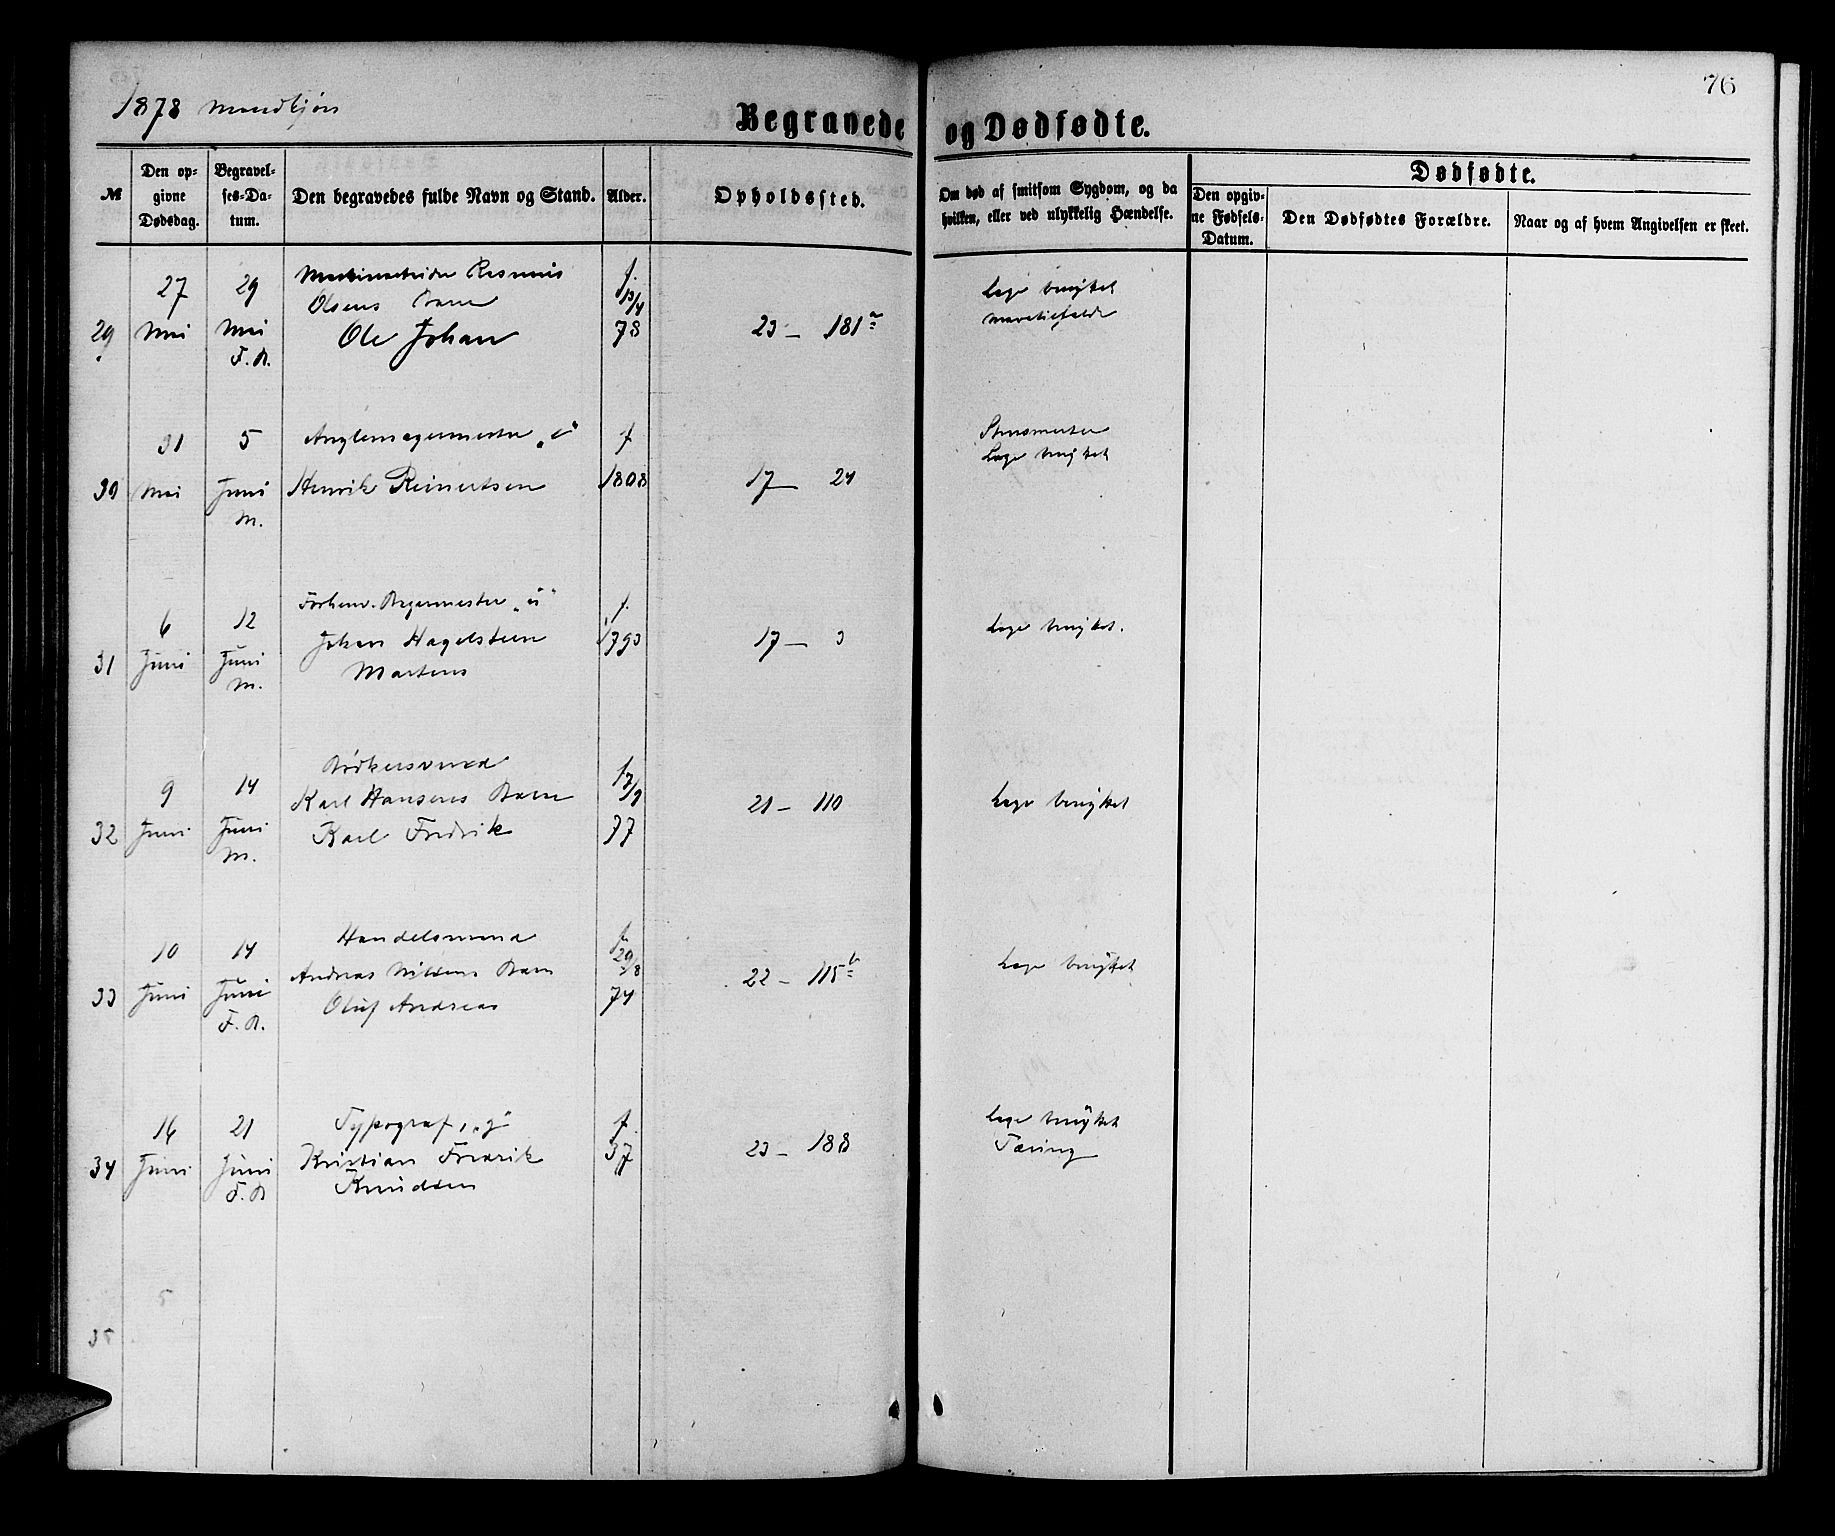 1878 Mandkjøn
76
Begravede og Dødfødte.
№
Den opgivne Dødsdag.
Begravelses-Datum.
Den begravedes fulde Navn og Stand.
Alder.
Opholdssted.
Om død af smitsom Sygdom, og da hvilken, eller ved ulykkelig Hændelse.
Dødfødte.
Den opgivne Fødsels-Datum.
Den Dødfødtes Forældre.
Naar og af hvem Angivelsen er skeet.
29
27 Mai
29 Mai F. A.
Rasmus
Olsens Barn
Ole Johan
f. 13/4 78
23 – 181 a
Læge benyttet
30
31 Mai
5 Juni M.
Henrik Reinertsen
f 1808
17 – 24
Læge benyttet
31
6 Juni
12 Juni M.
Forhenv. Bagermester
Johan Hagelsteen
Martens
f. 1793
17 – 3
Læge benyttet.
32
9 Juni
14 Juni M.
Bødkersvend
Karl Hansens Barn
Karl Fredrik
77
21 – 110
Læge benyttet
33
10 Juni
14 Juni F. A.
Handelsmand
Andreas Nilsens Barn
Oluf Andreas
f. 29/8 74
22 – 115 b
Læge benyttet
34
16 Juni
21 Juni F. A
Typograf, "g"
Kristian Fredrik
Knudsen
f. 37
23 – 188
Læge benyttet
Tæring
35